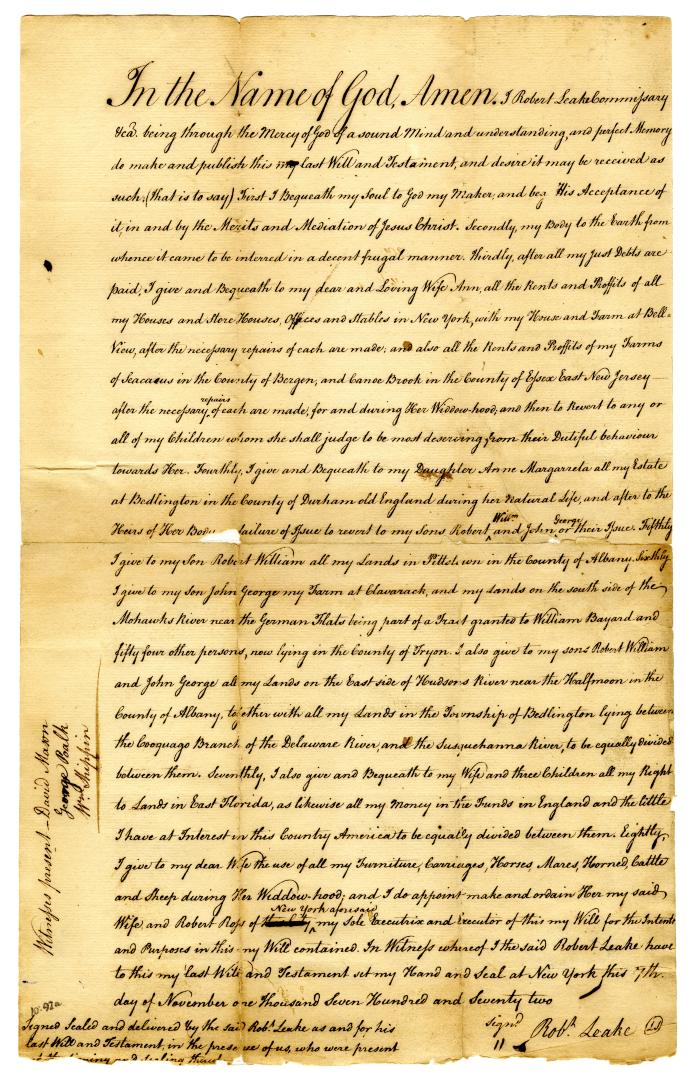 In the Name of God, Amen. I Robert Leake Commissary
&ca. being through the Mercy of God of a sound Mind and understanding, and perfect Memory
do make and publish this my last Will and Testament, and desire it may be received as
such; (that is to say) First I Bequeath my Soul to God my Maker, and beg His Acceptance of
it, in and by the Merits and Mediation of Jesus Christ. Secondly, my Body to the Earth from
whence it came to be interred in a decent frugal manner. Thirdly, after all my Just Debts are
paid, I give and Bequeath to my dear and Loving Wife Ann, all the Rents and Proffits of all
my Houses and Store Houses, Offices and Stables in New York, with my House and Farm at Bell-
View, after the necessary repairs of each are made; and also all the Rents and Proffits of my Farms
of Seacacus in the County of Bergen, and Canoe Brook in the County of Essex East New Jersey
after the necessary repairs of each are made, for and during Her Widdow-hood, and then to Revert to any or
all of my Children whom she shall judge to be most deserving, from their Dutiful behaviour
towards Her. Fourthly, I give and Bequeath to my Daughter Anne Margarreta all my Estate
at Bedlington in the County of Durham old England during her Natural Life, and after to the
Heirs of Her Body failure of Issue to revert to my Sons Robert Willm. and John George or their Issue. Fifthly
I give to my Son Robert William all my Lands in Pittst wn in the County of Albany. Sixthly
I give to my Son John George my Farm at Clavarack, and my Lands on the south side of the
Mohawks River near the German Flats being part of a Tract granted to William Bayard and
fifty four other persons, now lying in the County of Tryon. I also give to my sons Robert William
and John George all my Lands on the East side of Hudsons River near the Halfmoon in the
County of Albany, together with all my Lands in the Township of Bedlington lying between
the Cooquago Branch of the Delaware River, and the Susquehanna River, to be equally divided
between them. Seventhly, I also give and Bequeath to my Wife and three Children all my Right
to Lands in East Florida, as likewise all my Money in the Funds in England and the little
I have at Interest in this Country America to be equally divided between them. Eightly,
I give to my dear Wife the use of all my Furniture, Carriages, Horses, Mares, Horned, Cattle
and Sheep during Her Widdow-hood; and I do appoint make and ordain Her my said
Wife and Robert Ross of New York aforesaid my Sole Executrix and Executor of this my Will for the Intents
and Purposes in this my Will contained. In Witness whereof I the said Robert Leake have
to this my Last Will and Testament set my Hand and Seal at New York this 7th.
day of November one Thousand Seven Hundred and Seventy two
signd Robt. Leake
Signed Sealed and delivered by the said Robt. Leake as and for his
last Will and Testament, in the presence of us, who were present
at the signing and sealing thereof
Witnesses present - David Mason
George Palk
Wm. Shippin